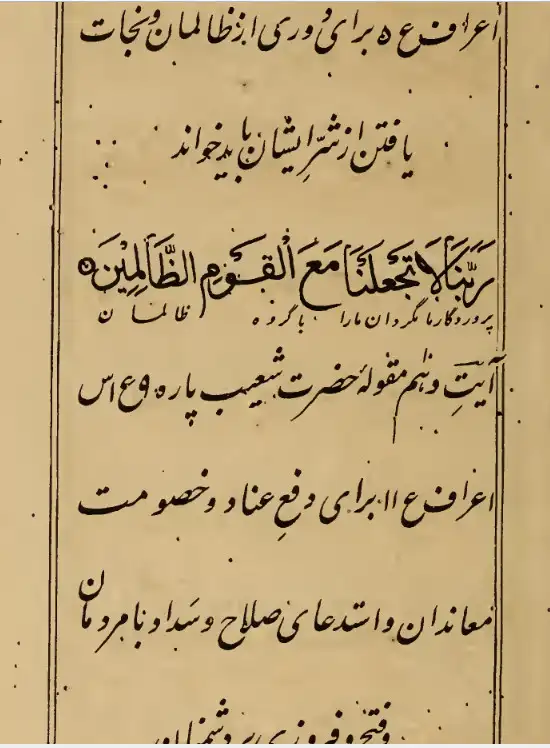 اعراف ع ۵ برای دوری از ظالمان و نجات
یافتن از شرِّ ایشان باید خواند
رَبَّنَا لَا تَجْعَلْنَا مَعَ الْقَوْمِ الظَّالِمِیْنَ
پروردگار ما مگردان مارا با گروه ظالمان
آیتِ دہم مقولۂ حضرت شعیب پاره ۹ ع اس
اعراف ع ۱۱ برای دفعِ عناد و خصومت
معاندان و استدعای صلاح و سداد با مردمان
و فتح و فیروزی بر دشمنان